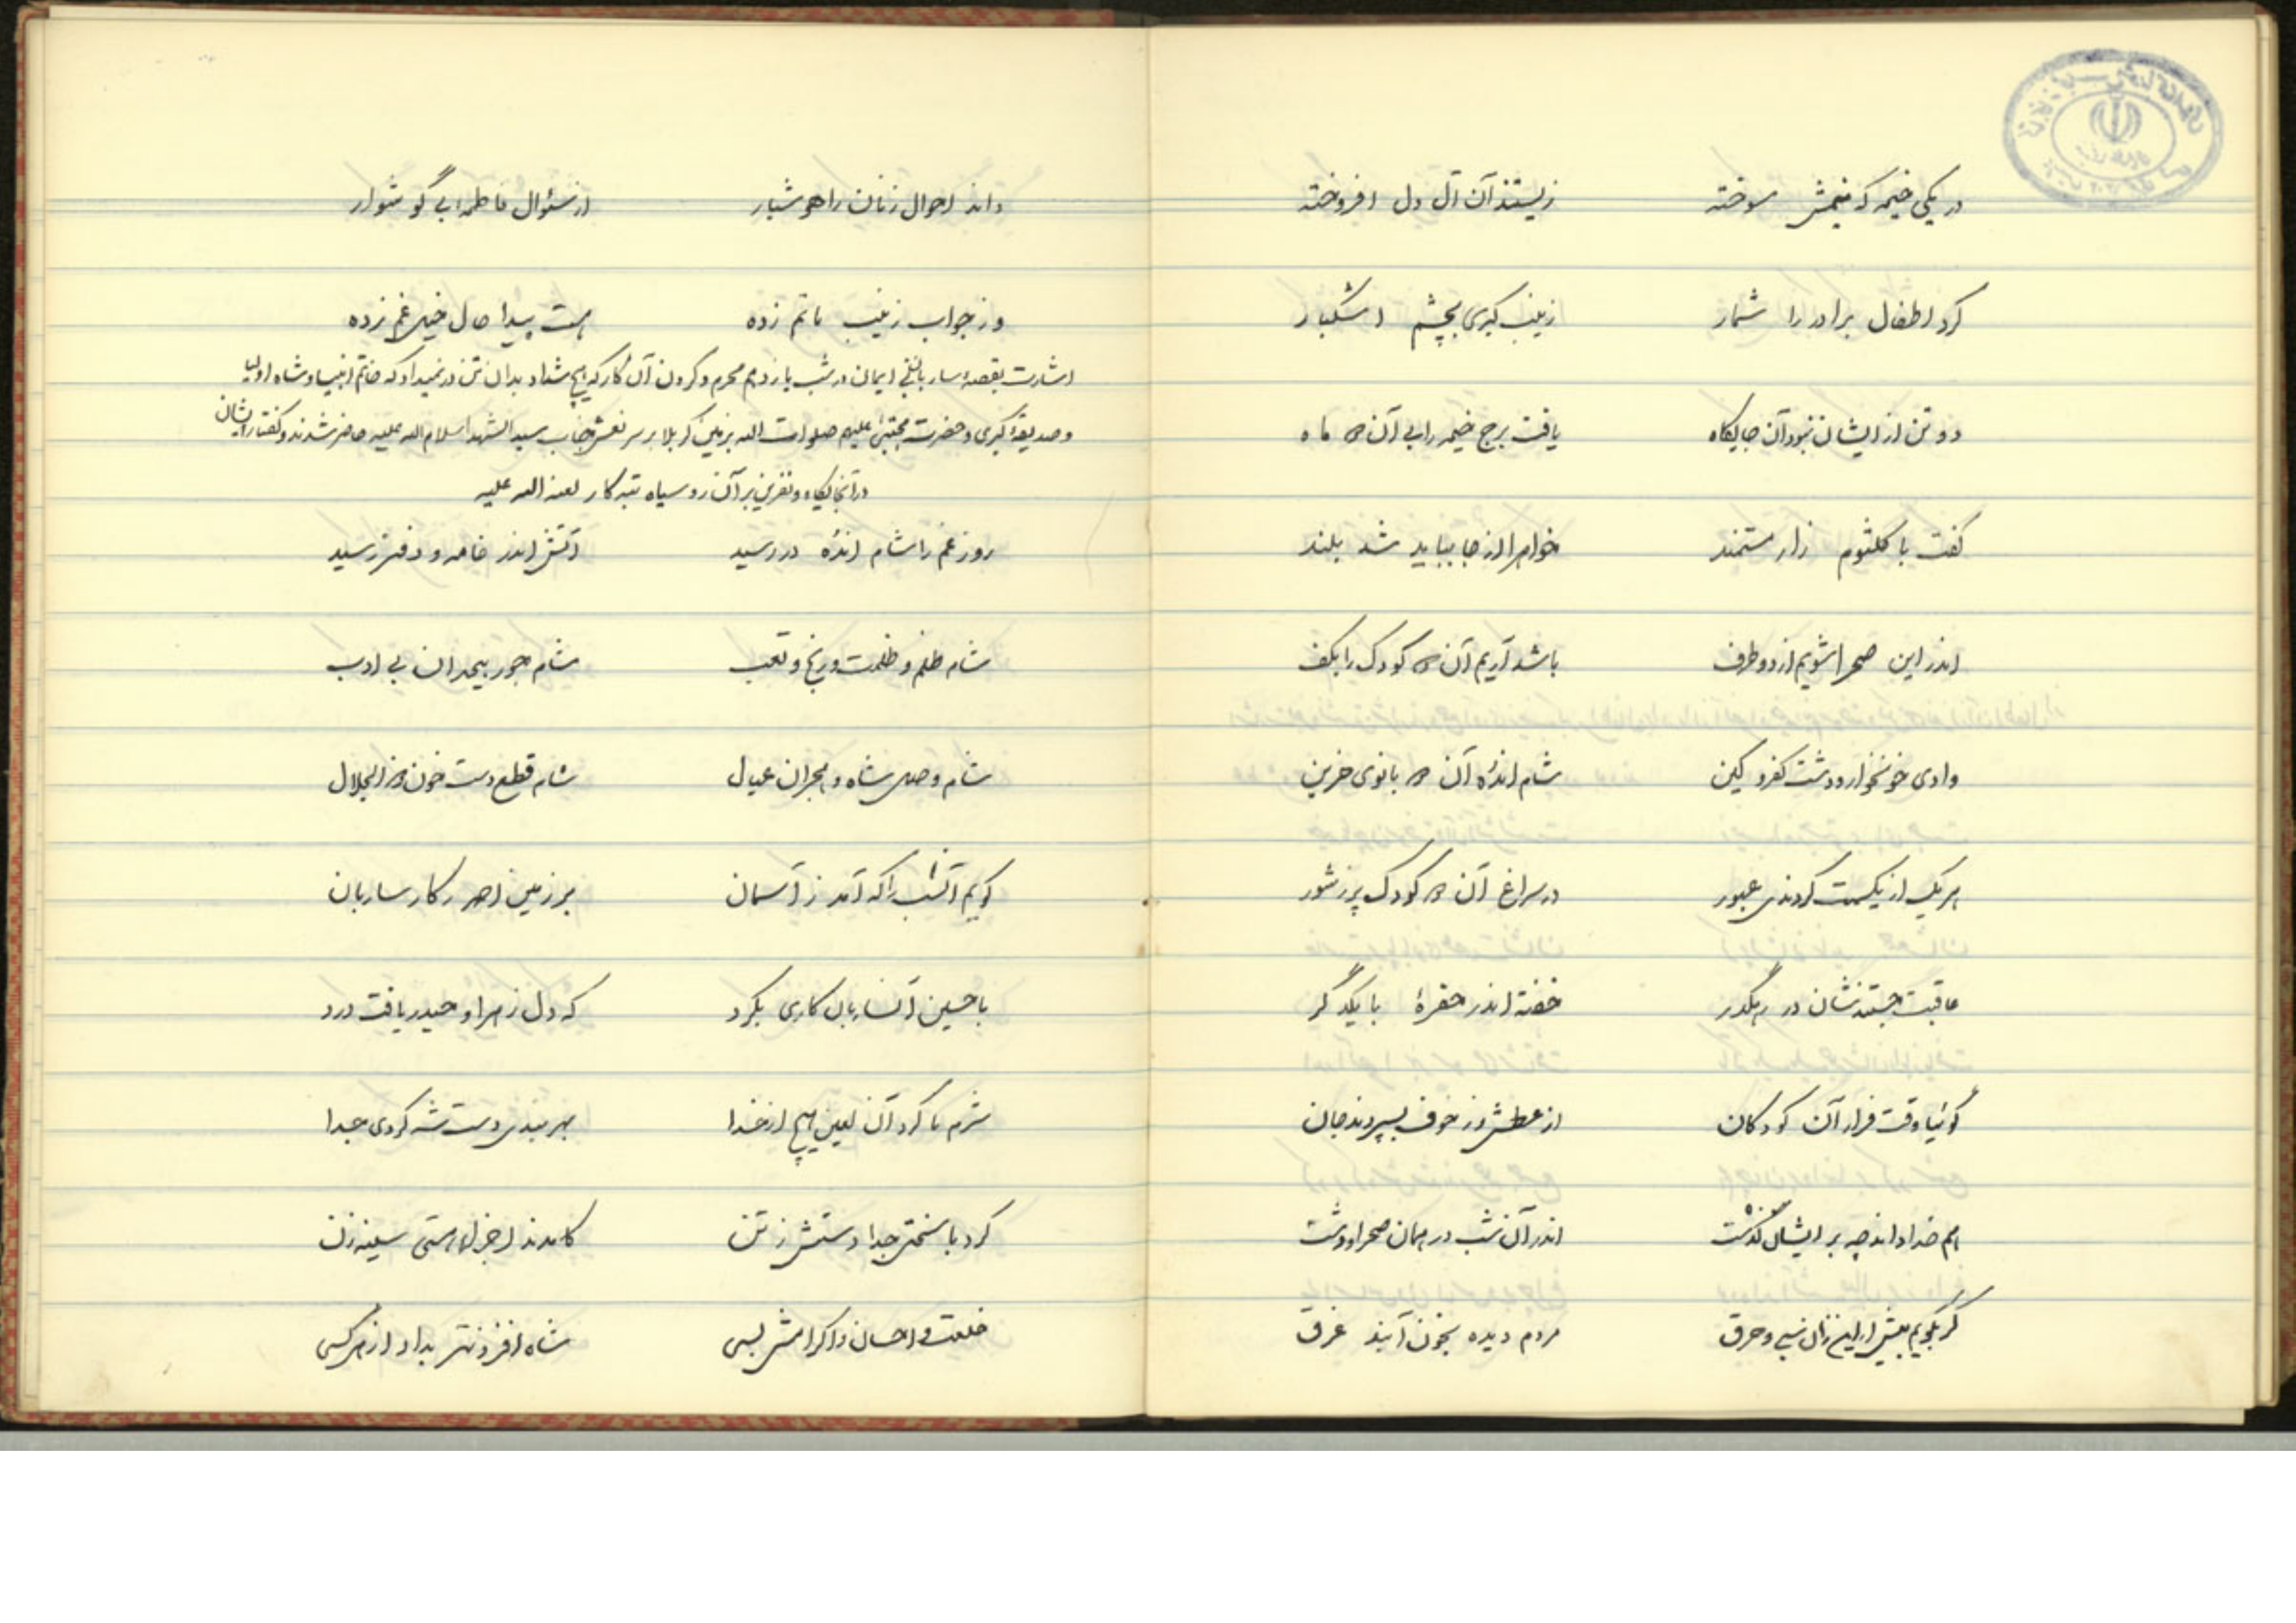 در یکی خیمه که نیمش سوخته زیستند آن آل دل افروخته
کرد اطفال برادر را شمار زینب کبری بچشم اشکبار
دو تن از ایشان نبود آن جایگاه یافت برج خیمه را بی آن دو ماه
گفت با کلثوم زار مستمند خواهرا از جا بباید شد بلند
اندر این صحرا شویم از دو طرف باشد آریم آن دو کودک را بکف
وادی خونخوار و دشت کفر و کین شام اندُه آن دو بانوی حزین
هر یک از یکسمت کردندی عبور در سراغ آن دو کودک پر ز شور
عاقبت جستندشان در رهگذر خفته اندر حفرهٔ با یکدگر
گوئیا وقت فرار آن کودکان از عطش وز خوف بسپردند جان
هم خدا داند چه بر ایشان گذشت اندر آن شب در همان صحرا و دشت
گر بگویم بیش از این زان نهب و حرق مردم دیده بخون آیند غرق
داند احوال زنان را هوشیار از سئوال فاطمه بی گوشوار
وز جواب زینب ماتم زده هست پیدا حال خیل غم زده
اشارت بقصهٔ ساربان نفی ایمان در شب یازدهم محرم و کردن آن کار که هیچ شداد بدان تن در نمیداد که خاتم انبیا و شاه اولیا
و صدیقهٔ کبری و حضرت مجتبی علیهم صلوات الله بزمین کربلا بر سر نعش جناب سید الشهدا سلام الله علیه حاضر شدند و گفتار ایشان
در آنجایگاه و نفرین بر آن رو سیاه تبه کار لعنه الله علیه
روز غم را شام اندُه در رسید آتش اندر خامه و دفتر رسید
شام ظلم و ظلمت و رنج و تعب شام جور بیحد آن بی ادب
شام وصل شاه و هجران عیال شام قطع دست خون ذو الجلال
گویم آنشب را که آمد ز آسمان بر زمین از هر کار ساربان
با حسین آنساربان کاری بکرد که دل زهرا و حیدر یافت درد
شرم نا کرد آن لعین هیچ از خدا بهر بندی دست شه کردی جدا
کرد با سختی جدا دستش ز تن کامدند اخیار هستی سینه زن
خلعت و احسان و اکرامش بسی شاه افزونتر بداد از هر کسی